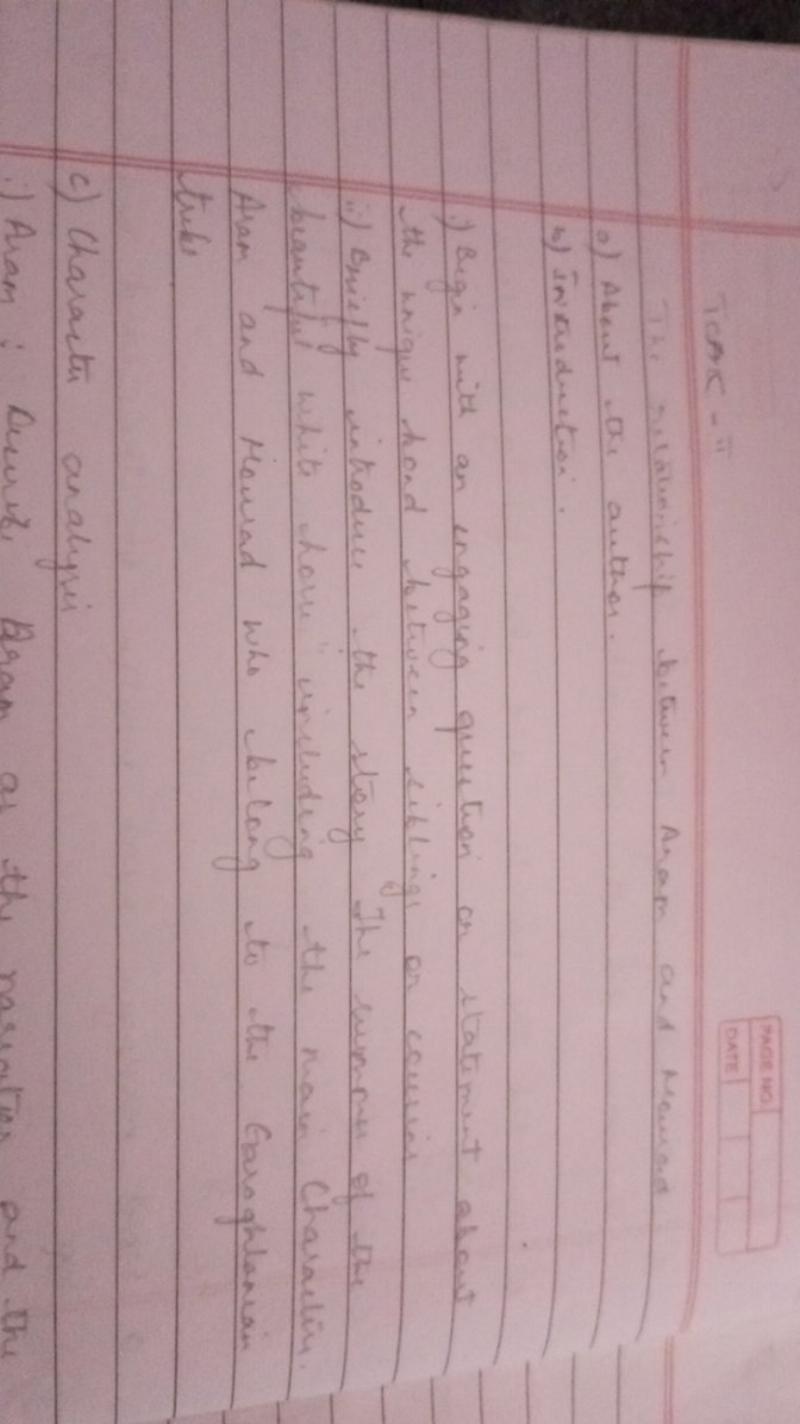 PAGE NO
DATE
TOPIC - II
The relationship between Aram and Mourad
a) About the author.
b) Introduction.
i) Begin with an engaging question or statement about
the unique bond between siblings or cousins
ii) Briefly introduce the story "The summer of the
beautiful white horse" including the main Characters.
Aram and Mourad who belong to the Garoghlanian
tribe.
c) Character analysis
i) Aram : Describe Aram as the narrator and the